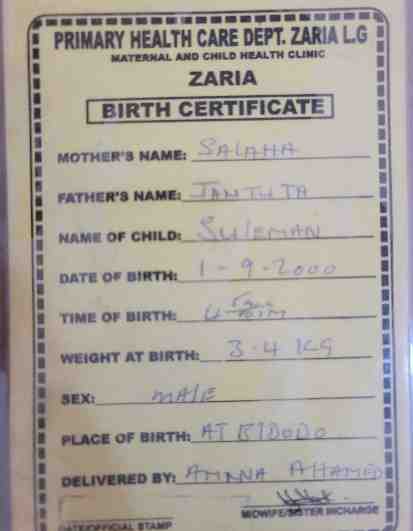 PRIMARY HEALTH CARE DEPT. ZARIA L.G
MATERNAL AND CHILD HEALTH CLINIC
ZARIA
BIRTH CERTIFICATE
MOTHER'S NAME: SALAHA
FATHER'S NAME:
NAME OF CHILD: SULEMAN
DATE OF BIRTH: 1-9-2000
TIME OF BIRTH:
WEIGHT AT BIRTH: 3.4 KG
SEX: MALE
PLACE OF BIRTH: AT
DELIVERED BY: AMINA AHAMED
MIDWIFE/SISTER INCHARGE
DATE/OFFICIAL STAMP